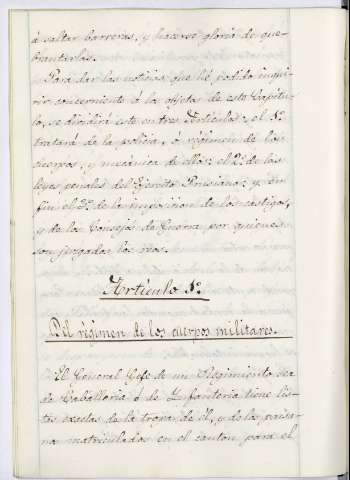 á saltar barreras, y hacerse gloria de que-
brantarlas.
Para dar las noticias que hé podido inqui-
rir concerniente á los objetos de este Capitu-
lo, se dividirá este en tres Artículos; el 1º
tratará de la policia, ó régimen de los
cuerpos, y mecánica de ellos: el 2º de las
leyes penales del Ejercito Prusiano: y en
fin el 3º de la imposicion de los castigos,
y de los Consejos de Guerra por quienes
son juzgados los reos.
Artículo 1º
Del régimen de los cuerpos militares.
El General Gefe de un Regimiento sea
de Caballeria ó de Infanteria tiene lis-
tas exactas de la tropa de él, y de los paisa-
nos matriculados en el canton para el